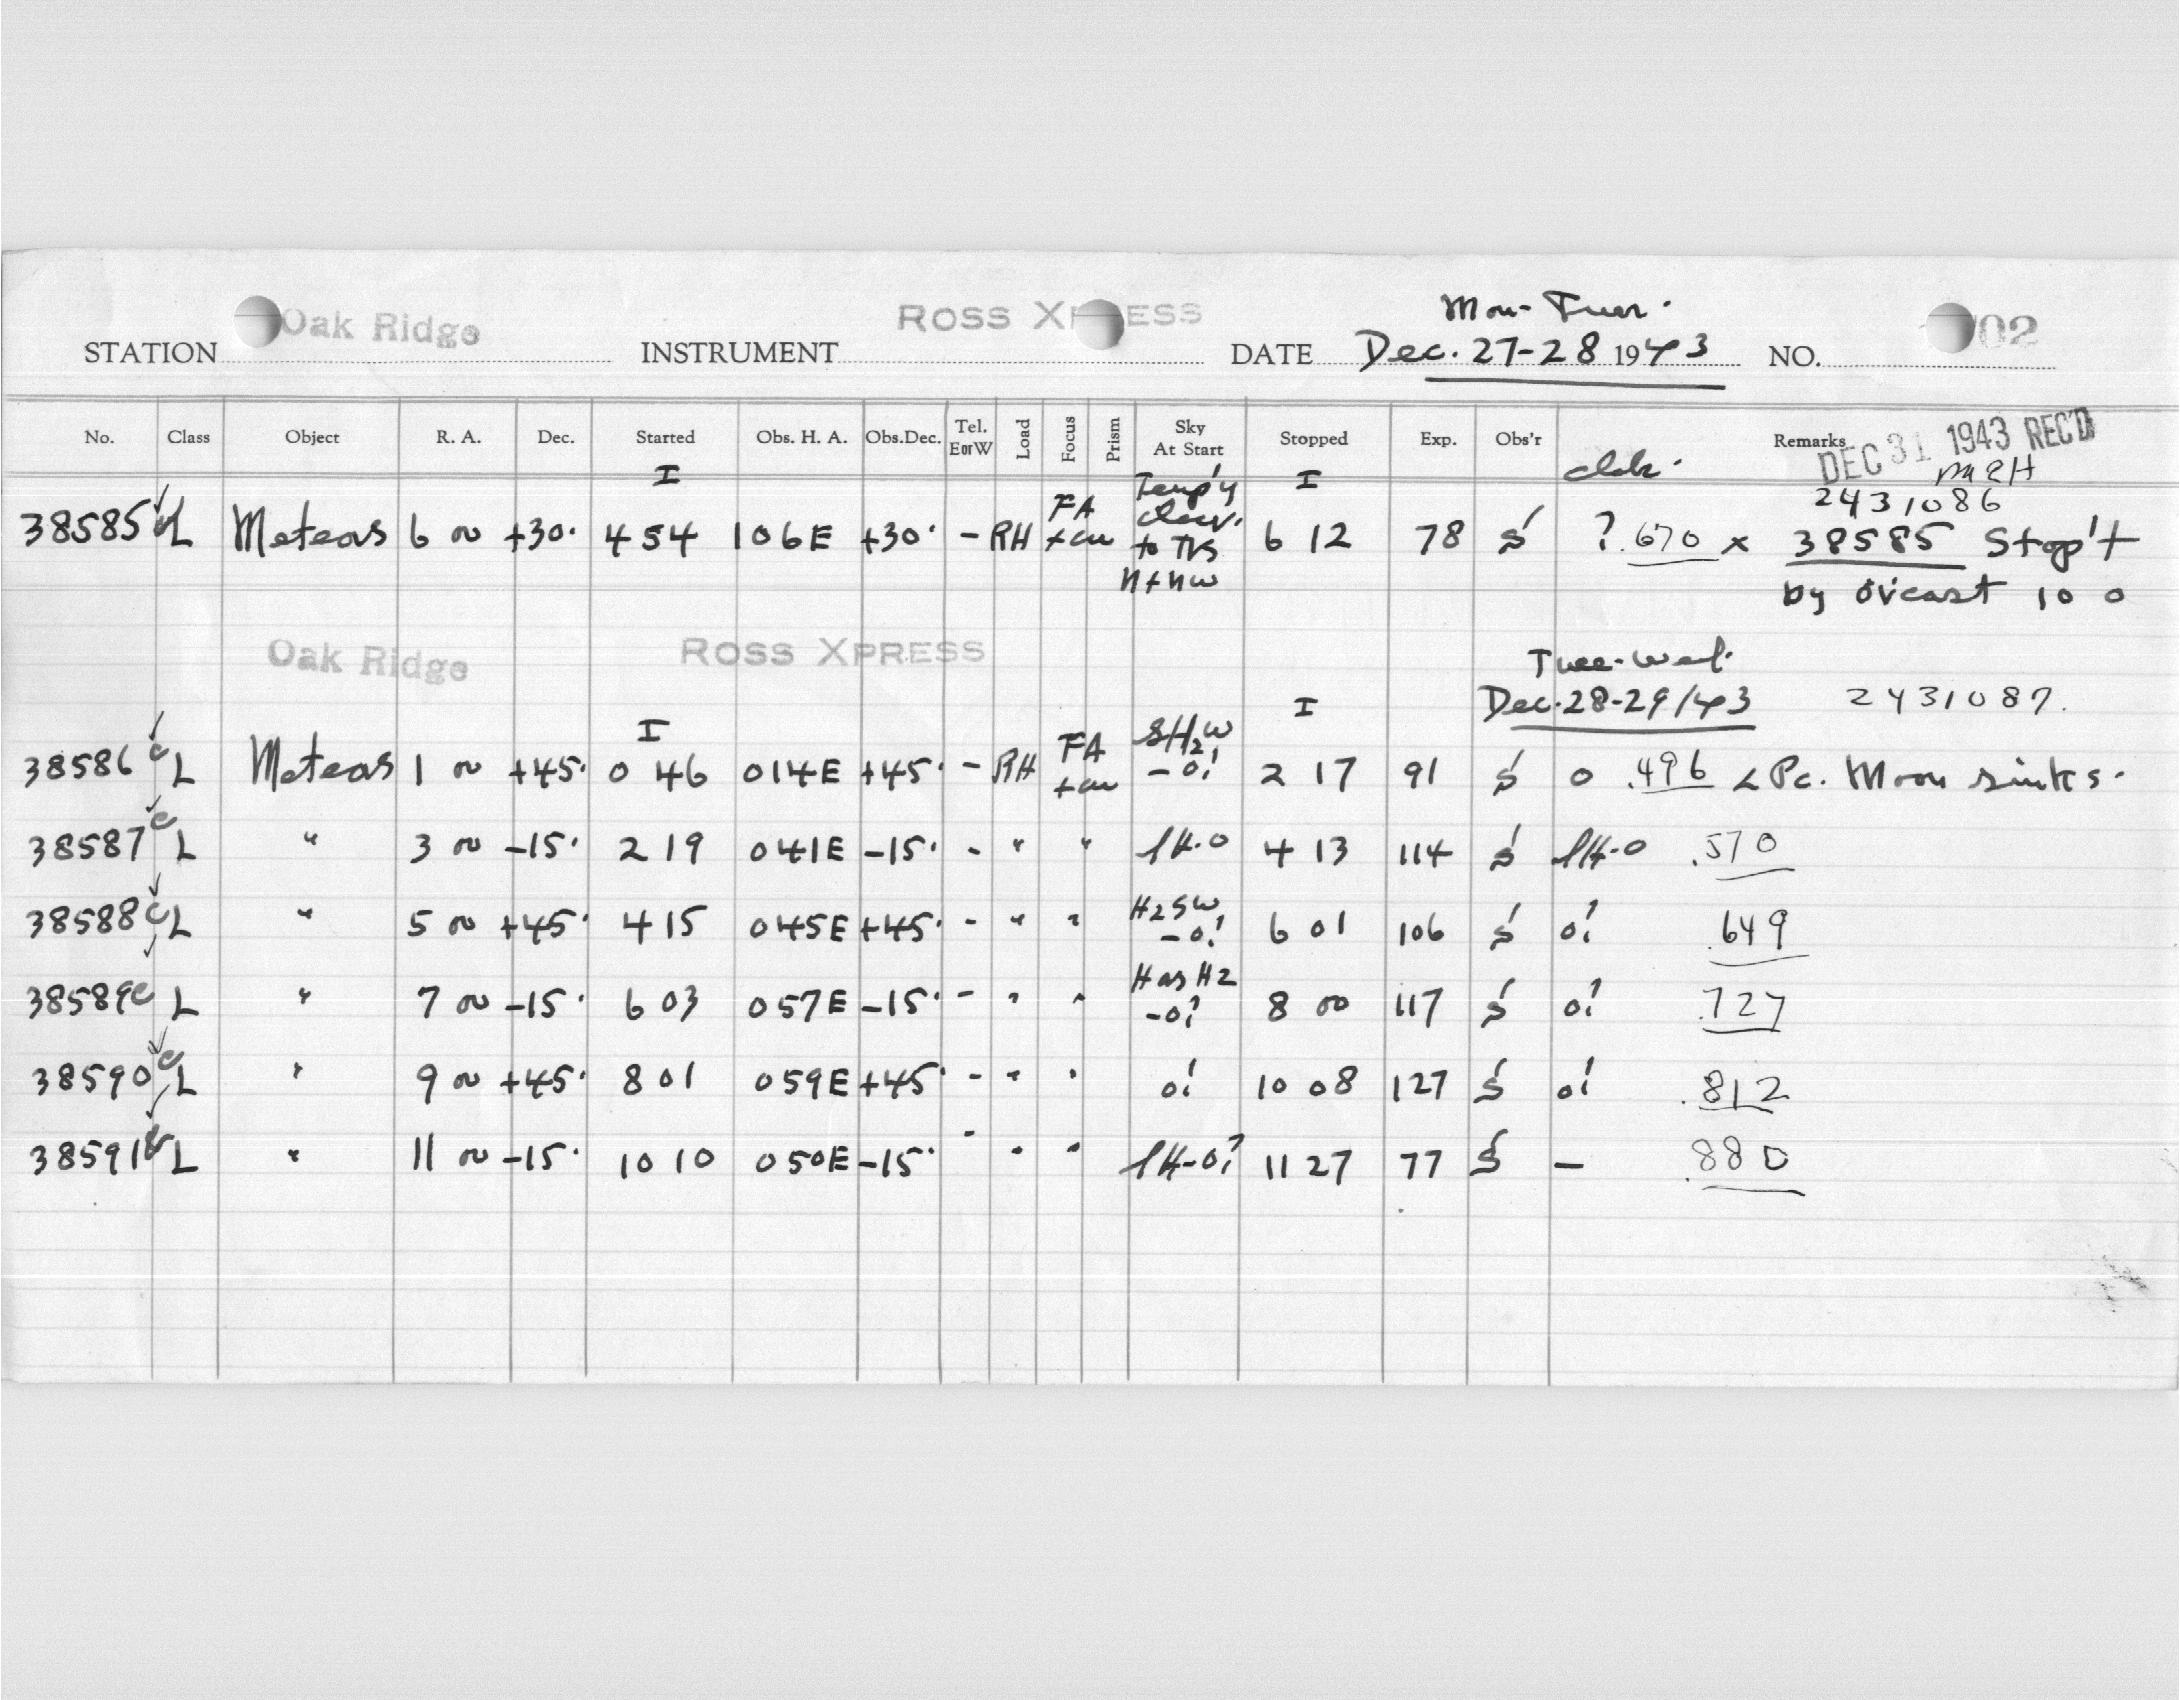 Mon-Tues.
STATION Oak Ridge INSTRUMENT ROSS XPRESS DATE Dec. 27-28 1943 NO. 02
No. Class Object R. A. Dec. Started Obs. H. A. Obs.Dec. Tel. EorW Load Focus Prism Sky At Start Stopped Exp. Obs'r Remarks
DEC 31 1943 REC'D
I I
2431086
38585 L Meteors 6 00 +30· 4 54 106E +30· - RH FA Temp'y clear. to N+NW 6 12 78 S ? .670 x 38585 Stop't
by ov'cast 10 0
Oak Ridge ROSS XPRESS Tues-Wed.
Dec. 28-29/43 2431087.
I I
38586 c L Meteors 1 00 +45· 0 46 014E +45· - RH FA SH2W -0! 2 17 91 S 0 .496 < Pc. Moon sinks.
38587 c L " 3 00 -15· 2 19 041E -15· - " " 4 13 114 S .570
38588 c L " 5 00 +45· 4 15 045E +45· - " " H2SW -0! 6 01 106 S 0! .649
38589 c L " 7 00 -15· 6 03 057E -15· - " " H as H2 -0! 8 00 117 S 0! .727
38590 c L " 9 00 +45· 8 01 059E +45· - " " 0! 10 08 127 S 0! .812
38591 L " 11 00 -15· 10 10 050E -15· - " " 11 27 77 S — .880